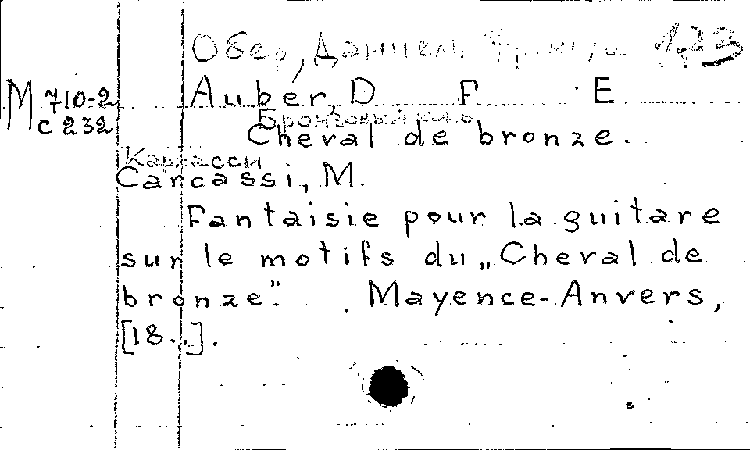 Обер, Даниель 173
М 710-2 Auber, D F E
с 232
Бронзовый конь
Cheval de bronze.
Каркасси
Carcassi, M.
Fantaisie pour la guitare
sur le motifs du „Cheval de
bronze". Mayence-Anvers,
[18..].